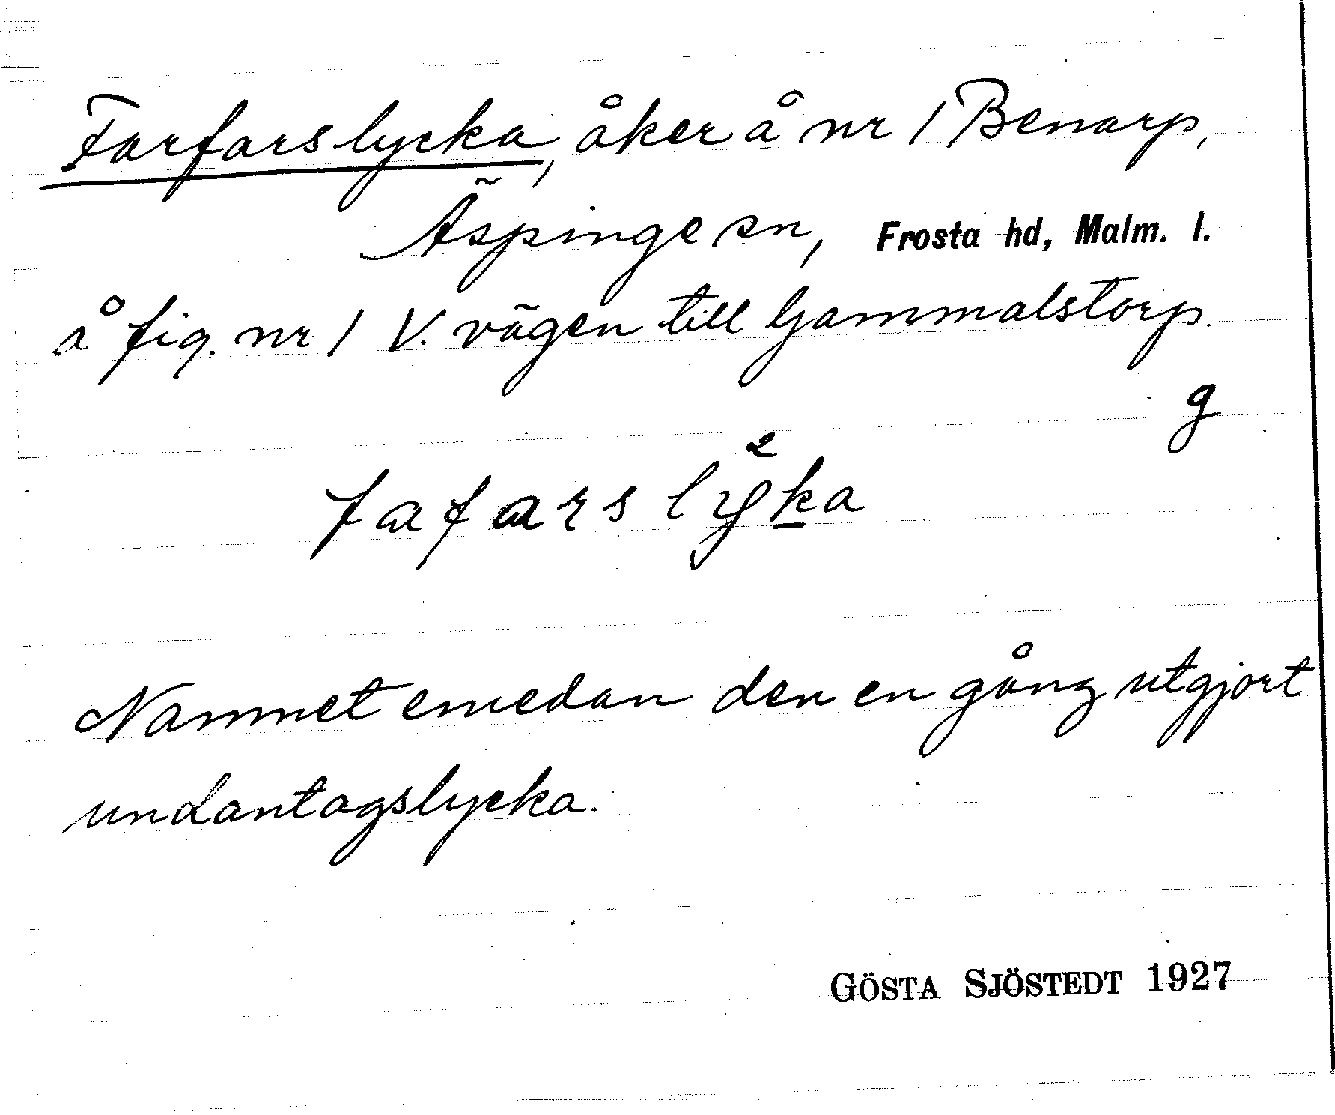 Farfarslycka, åker å nr 1 Benarp,
Äspinge sn, Frosta hd, Malm. l.
å fig. nr 1 V. vägen till Gammalstorp.
g
Namnet emedan den en gång utgjort
undantagslycka.
GÖSTA SJÖSTEDT 1927